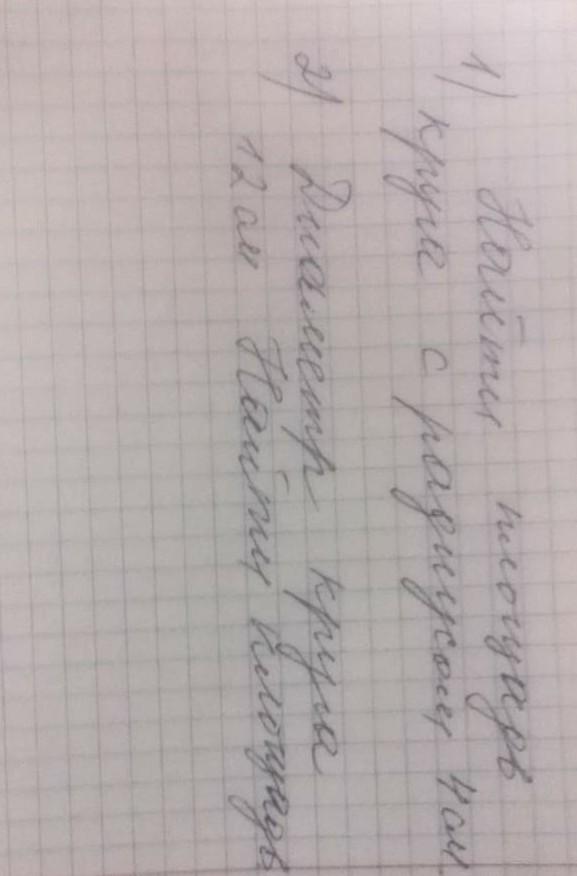 1) Найти площадь
круга с радиусом 4 см.
2) Диаметр круга
12 см Найти площадь